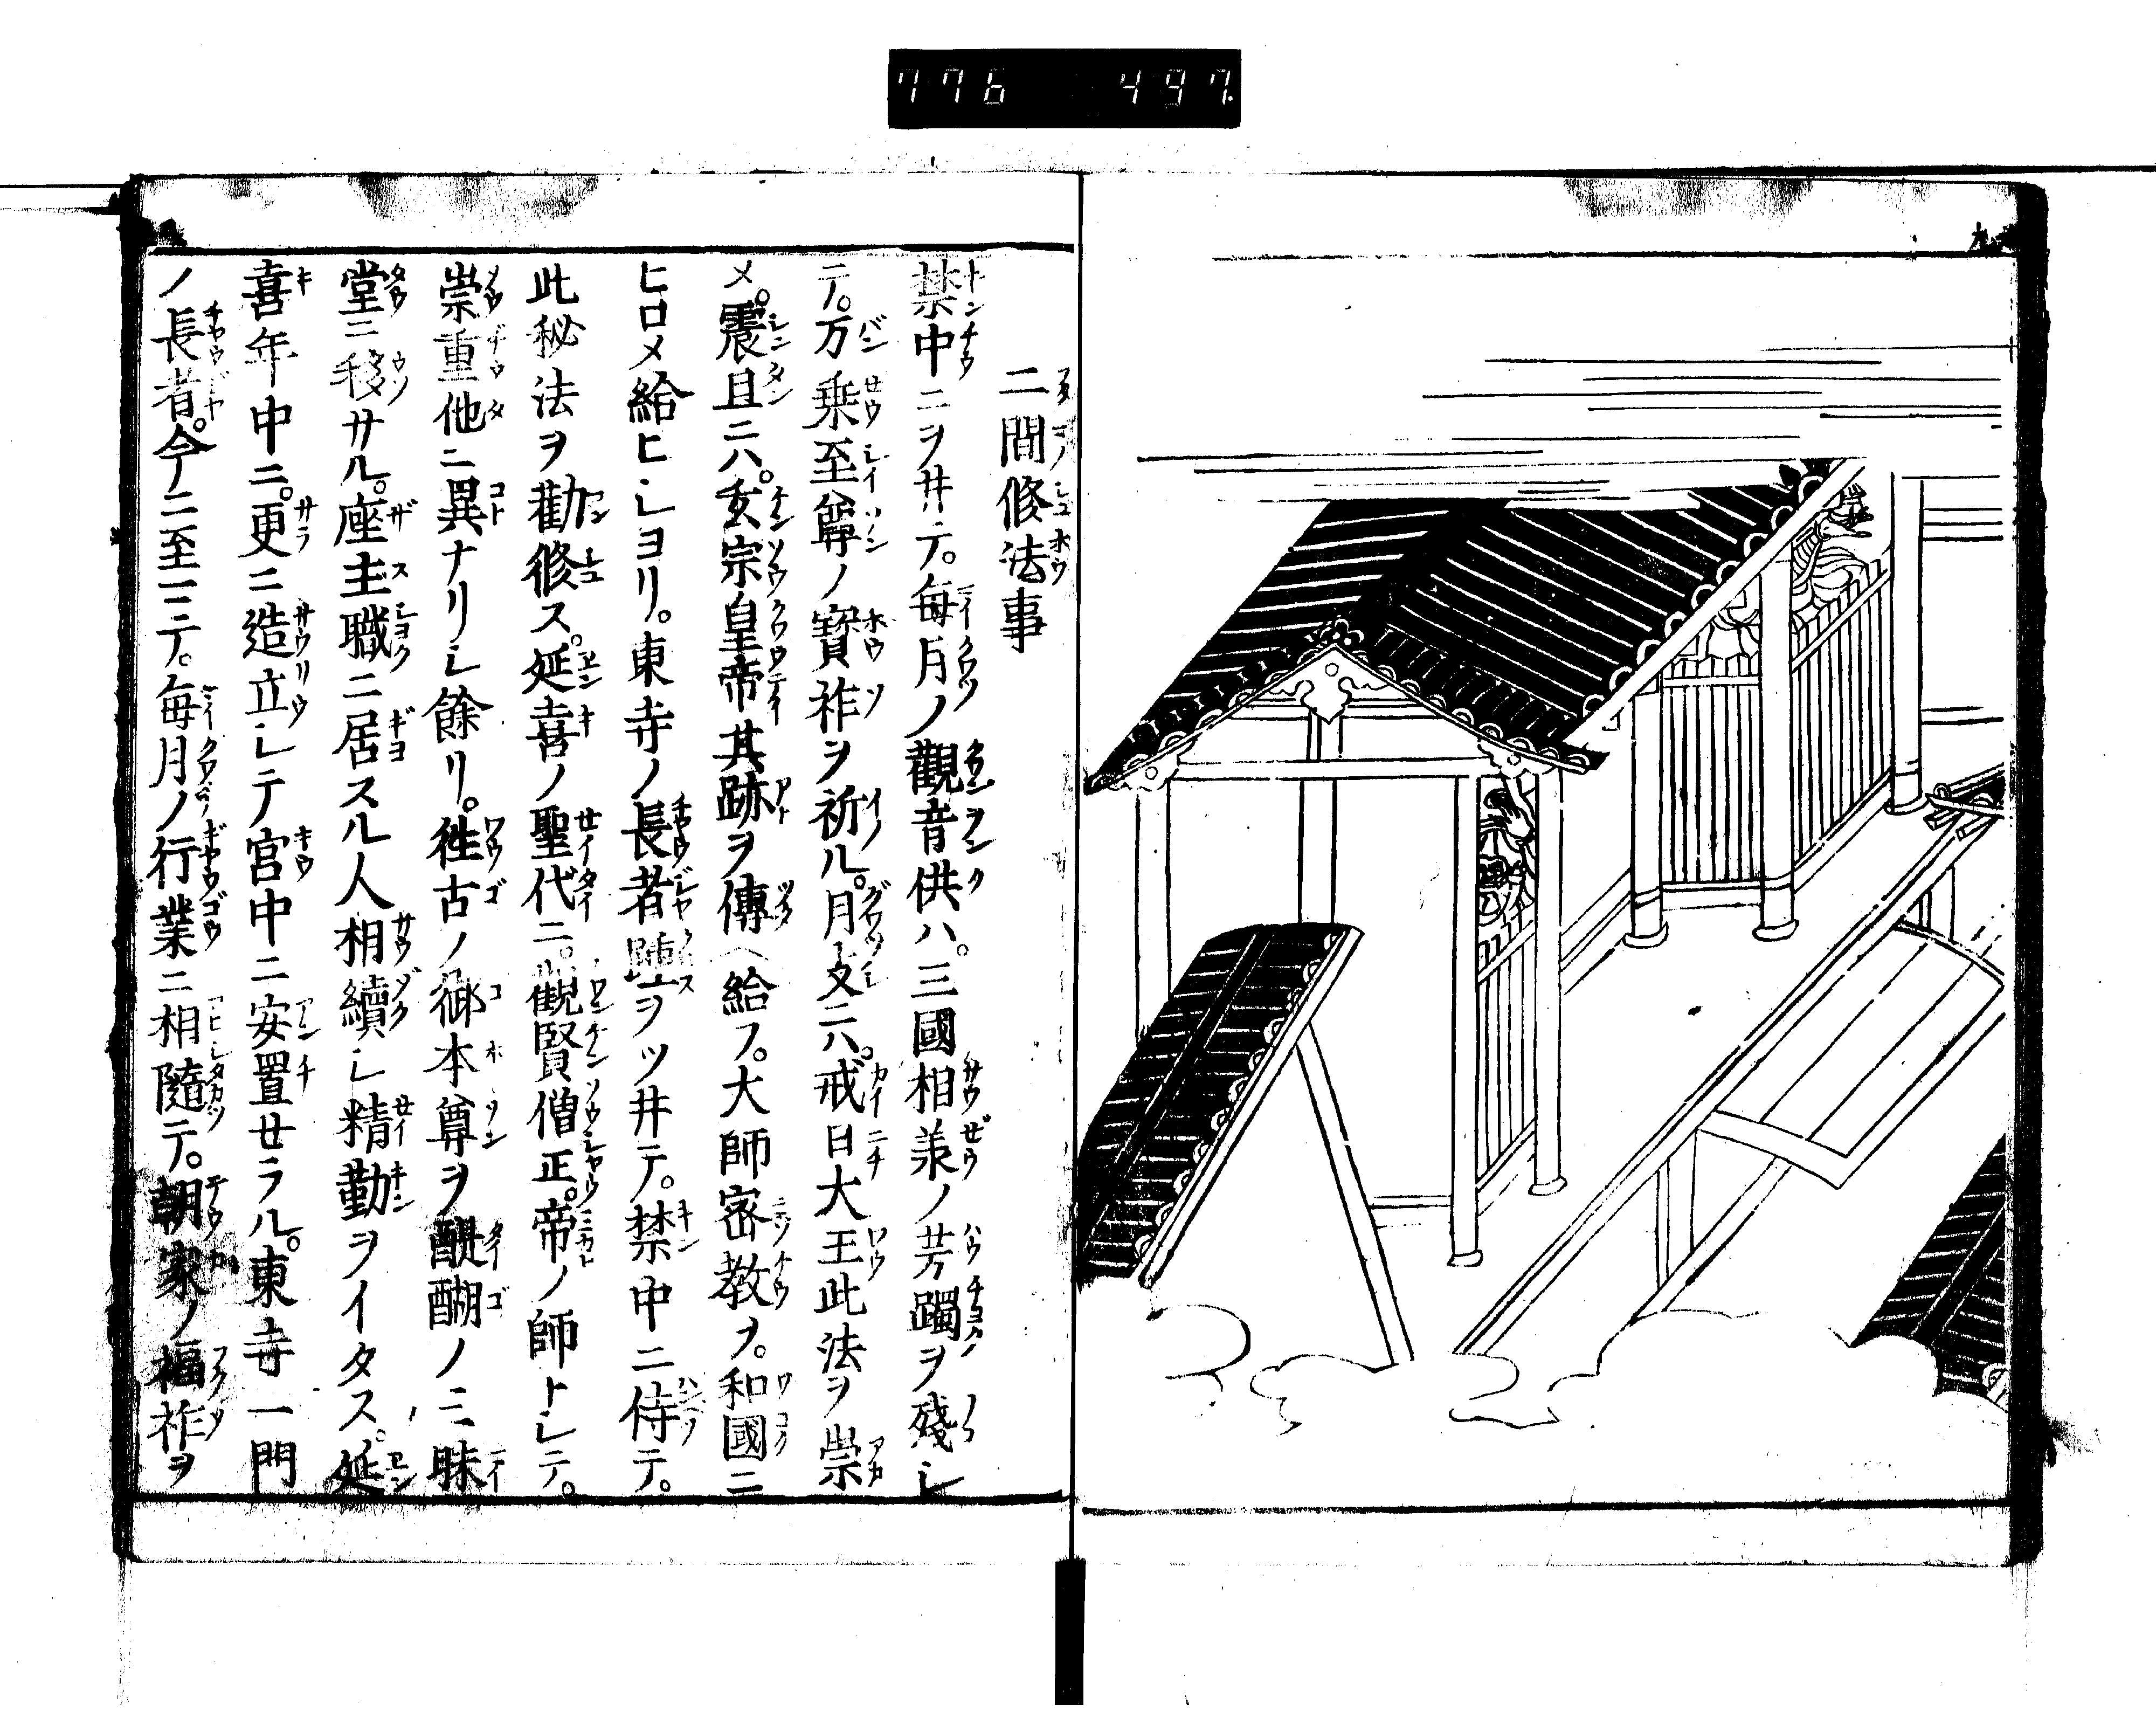 776 497.
二間修法事
禁中ニヲ井テ。毎月ノ觀音供ハ。三國相羕ノ芳躅ヲ殘シ
テ。万乗至尊ノ寳祚ヲ祈ル。月支ニハ。戒日大王此法ヲ崇
メ。震旦ニハ。玄宗皇帝其跡ヲ傳ヘ給フ。大師密教ヲ。和國ニ
ヒロメ給ヒシヨリ。東寺ノ長者踵ヲツ井テ。禁中ニ侍テ。
此秘法ヲ勸修ス。延喜ノ聖代ニ。觀賢僧正。帝ノ師トシテ。
崇重他ニ異ナリシ餘リ。徃古ノ御本尊ヲ醍醐ノ三昧
堂ニ移サル。座主職ニ居スル人相續シ精勤ヲイタス。延
喜年中ニ。更ニ造立シテ宮中ニ安置セラル。東寺一門
ノ長者。今ニ至ニテ。毎月ノ行業ニ相隨テ。朝家ノ福祚ヲ